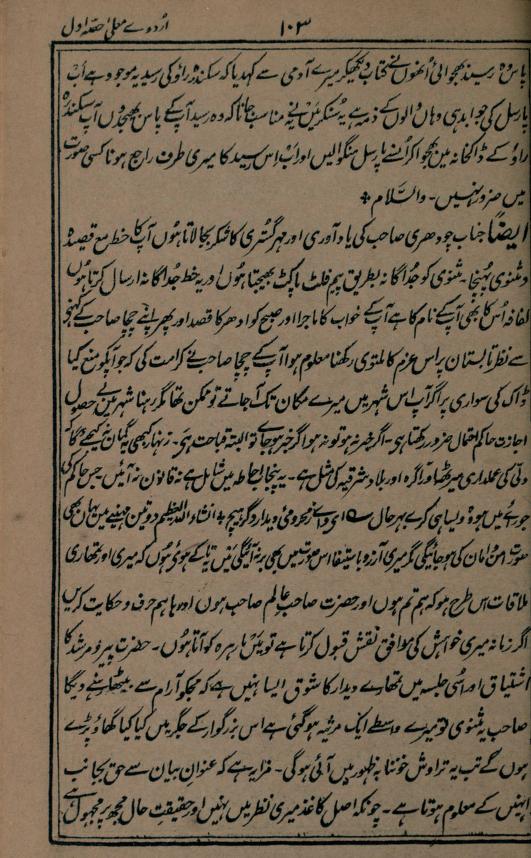 ۱۰۳ اُردوے معلیٰ حصّہ اول
پاس وہ رسید بھجوائی اُنھوں نے کتاب دیکھکر میرے آدمی سے کہدیا کہ سکندرہ راؤ کی رسید یہ موجود ہے اب
پارسل کی جوابدہی وہاں والوں کے ذمہ ہے یہ سُنکر مین نے مناسب جانا کہ وہ رسید آپکے پاس بھیجدوں آپ سکندرہ
راؤ کے ڈاکخانہ مین بھجوا کر اپنے پارسل منگوالیں اور اب اس رسید کا میری طرف راجع ہونا کسی صورت
میں ضرور نہیں۔ والسّلام
ایضاً جناب چودھری صاحب کی یاد آوری اور مہر گستری کا شکر بجالاتا ہوں آپکا خط مع قصیدہ
و مثنوی پہنچا۔ مثنوی کو جُداگانہ بطریق پیم فلٹ پاکٹ بھیجتا ہوں اور یہ خط جُداگانہ ارسال کرتا ہوں
لفافہ اُسکا بھی آپکے نام کا ہے آپکے خواب کا ماجرا اور صبح کو ادھر کا قصد اور پھر اپنے چچا صاحب کے کہنے
سے نظر تابستان پر اس عزم کا ملتوی رکھنا معلوم ہوا آپکے چچا صاحب نے کرامت کی کہ جو آپکو منع کیا
ڈاک کی سواری پر اگر آپ اس شہر میں میرے مکان تک آجاتے تو ممکن تھا مگر رہنا شہر میں بے حصول
اجازت حاکم احتمال ضرر رکھتا ہی۔ اگر خبر نہو تو نہو اگر خبر ہوجاے تو البتہ قباحت ہی۔ زنہار کبھی یہ گمان نکیجیے گا کہ
دلّی کی عملداری میرٹھ اور آگرہ اور بلاد شرقیہ کی مثل ہے۔ یہ پنجاب احاطہ میں شامل ہے نہ قانون نہ آئین جس حاکم کی
جو رائے میں ہو وہ ویسا ہی کرے بہرحال ع اے وائے ز محرومی دیدار دگر ہیچ انشاء اللہ العظیم دو تین مہینے میں یہاں بھی
صورت امن و امان کی ہوجائیگی مگر میری آرزو باستیفا اس صورت میں بھی بر نہ آئیگی میں یہ تاکے ہوئے ہوں کہ میری اور تمھاری
ملاقات اس طرح ہو کہ ہم تم ہوں اور حضرت صاحب عالم صاحب ہوں اور باہم حرف و حکایت کریں
اگر زمانہ میری خواہش کی موافق نقش قبول کرتا ہے تو میں مارہرہ کو آتا ہوں۔ حضرت پیر و مرشد کا
اشتیاق اور اسی جلسہ میں تمھارے دیدار کا شوق ایسا نہیں ہے کہ مجکو آرام سے بیٹھا رہنے دیگا
صاحب یہ مثنوی تو میرے واسطے ایک مرثیہ ہوگئی ہے اس بزرگوار کے جگر میں کیا کیا گھاؤ پڑے
ہوں گے تب یہ تراوش خونابہ ظہور میں آئی ہوگی۔ مزا یہ ہے کہ عنوان بیان سے حق بجانب
اِنہیں کے معلوم ہوتا ہے۔ چونکہ اصل کاغذ میری نظر میں نہیں اور حقیقت حال مجھپر مجہول ہے